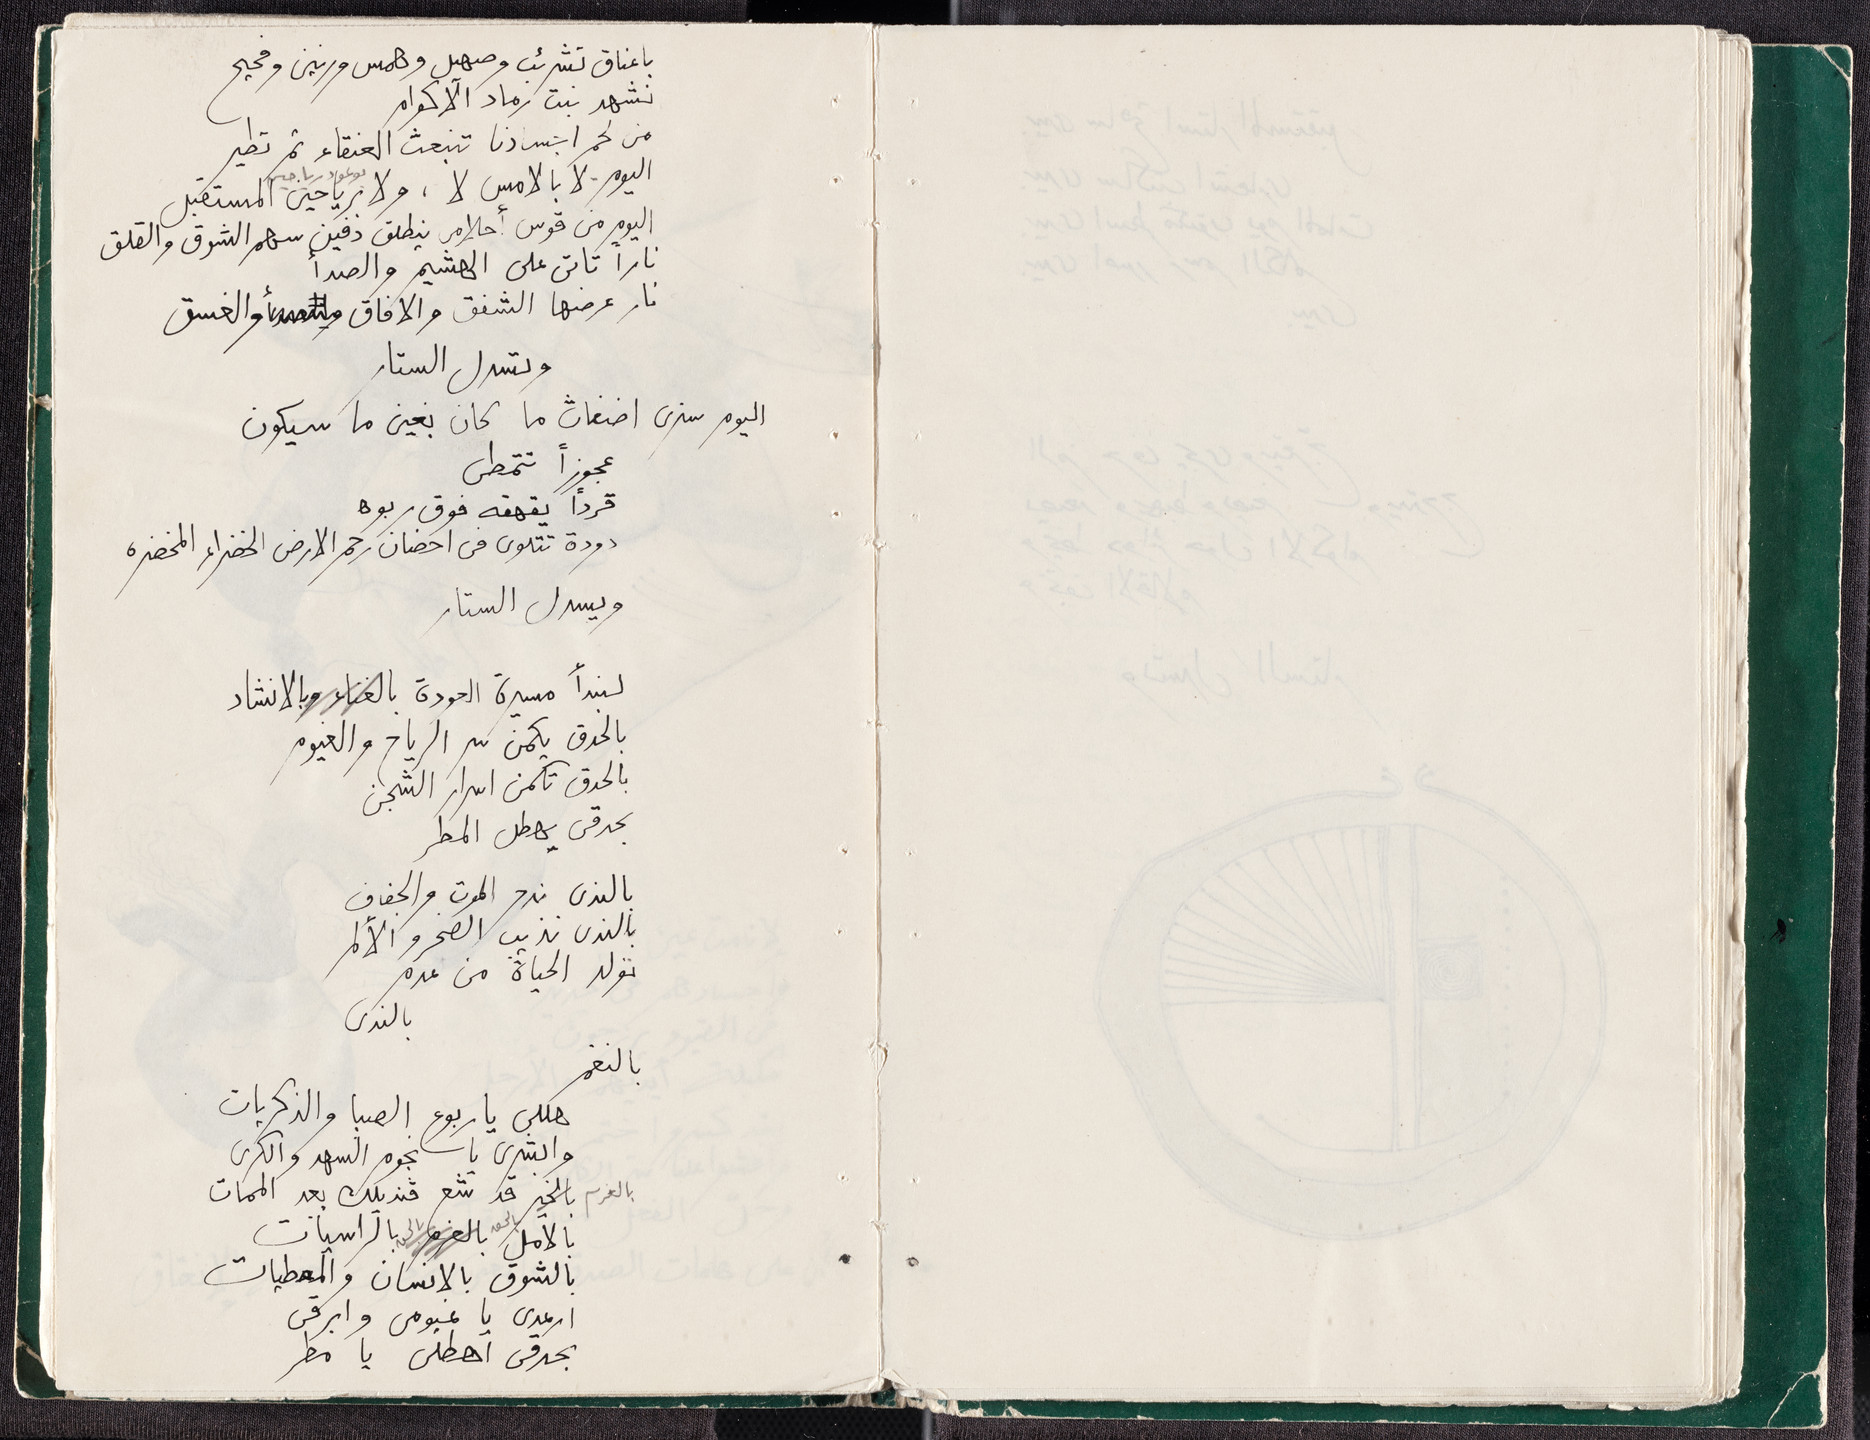 باعناق تشرئب وصهيل وهمس ورنين وفحيح
نشهد نبت رماد الأكوام
من لحم اجسادنا تنبعث العنقاء ثم تطير
اليوم لا بالامس لا ، ولا برياحين المستقبل
اليوم من قوس أحلامي ينطلق دفين سهم الشوق والقلق
ناراً تاتي على الهشيم والصدأ
نار عرضها الشفق والافاق والغسق
وتسدل الستار
اليوم سنرى اضغاث ما كان بعين ما سيكون
عجوزاً تتمطى
قرداً يقهقه فوق ربوه
دودة تتلوى في احضان رحم الارض الخضراء المخضره
ويسدل الستار
لنبدأ مسيرة العودة بالغناء وبالانشاد
بالحدق يكمن سر الرياح والغيوم
بالحدق تكمن اسرار الشجن
بحدقي يهطل المطر
بالندى ندحر الموت والجفاف
بالندى نذيب الصخر والألم
نولد الحياة من عدم
بالندى
بالنغم
هللي يا ربوع الصبا والذكريات
والبشرى يا نجوم السهد والكرى
بالعزم بالخير قد شع قنديلك بعد الممات
بالأمل بالحق بالعزم بالراسيات
بالشوق بالإنسان والمعطيات
ارعدي يا غيومي وابرقي
بحدقي اهطلي يا مطر